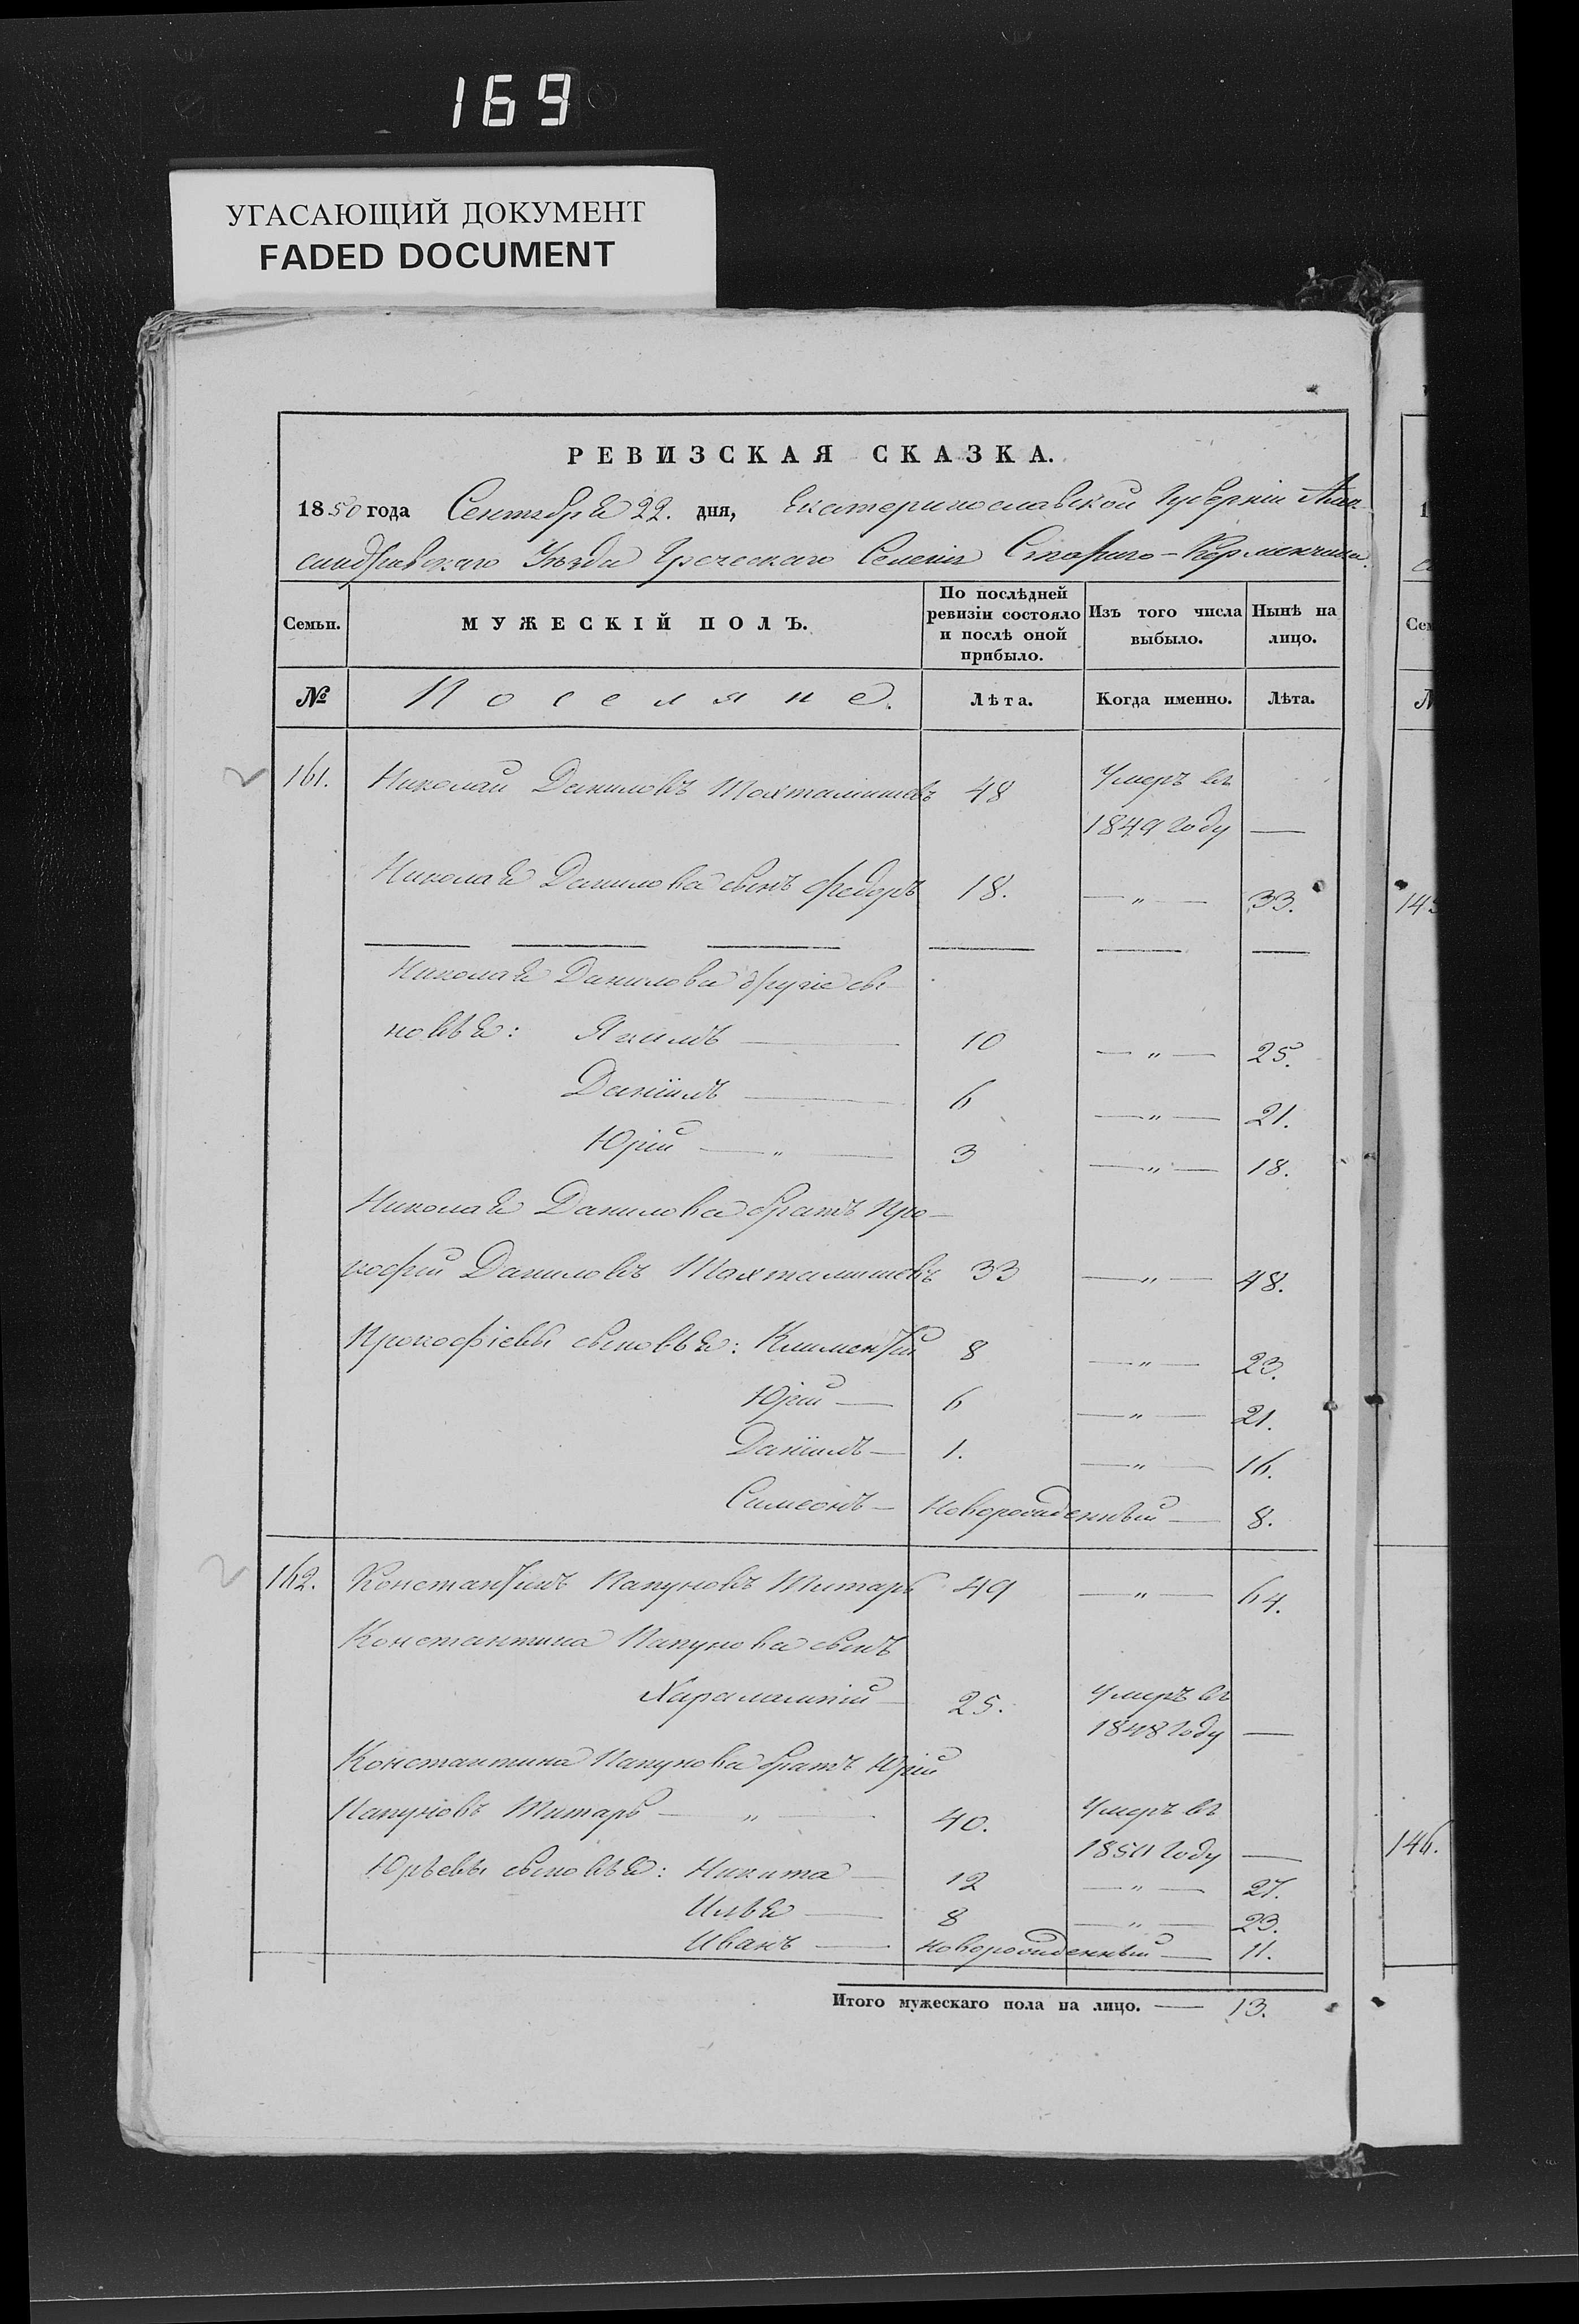 169
УГАСАЮЩИЙ ДОКУМЕНТ
FADED DOCUMENT
РЕВИЗСКАЯ СКАЗКА.
1850 года Сентября 22. дня, Екатеринославской Губерніи Алек
сандровскаго Уѣзда Греческаго Селенія Стараго-Керменчика.
Семьи. МУЖЕСКІЙ ПОЛЪ. По послѣдней ревизіи состояло и послѣ оной прибыло. Изъ того числа выбыло. Нынѣ на лицо.
№ Поселяне. Лѣта. Когда именно. Лѣта.
161. Николай Даниловъ Тохтамишевъ 48 Умеръ въ
1849 году —
Николая Данилова сынъ Федоръ 18. — „ — 33.
Николая Данилова другіе сы
новья: Якимъ — 10 — „ — 25.
Даніилъ — 6 — „ — 21.
Юрій — „ — 3 — „ — 18.
Николая Данилова братъ Про-
кофій Даниловъ Тохтамишевъ 33 — „ — 48.
Прокофіевы сыновья: Климентій 8 — „ — 23.
Юрій — 6 — „ — 21.
Даніилъ — 1. — „ — 16.
Симеонъ — Новорожденный — 8.
162. Константинъ Папуновъ Титаръ 49 — „ — 64.
Константина Папунова сынъ
Харалампій — 25. Умеръ въ
1848 году —
Константина Папунова братъ Юрій
Папуновъ Титаръ — „ — 40. Умеръ въ
1850 году —
Юрьевы сыновья: Никита — 12 — „ — 27.
Илья — 8 — „ — 23.
Иванъ — новорожденный — 11.
Итого мужескаго пола на лицо. — 13.
146.